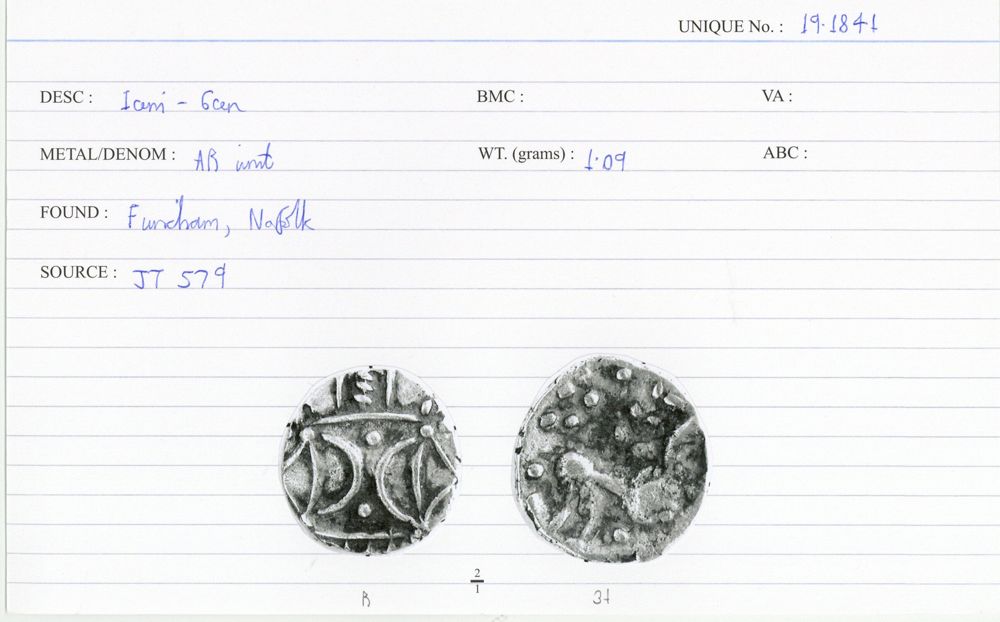 UNIQUE No. : 19.1841
DESC : Iceni - Ecen BMC : VA :
METAL/DENOM : AR unit WT. (grams) : 1.09 ABC :
FOUND : Fincham, Norfolk
SOURCE : JT 579
2
1
B 31